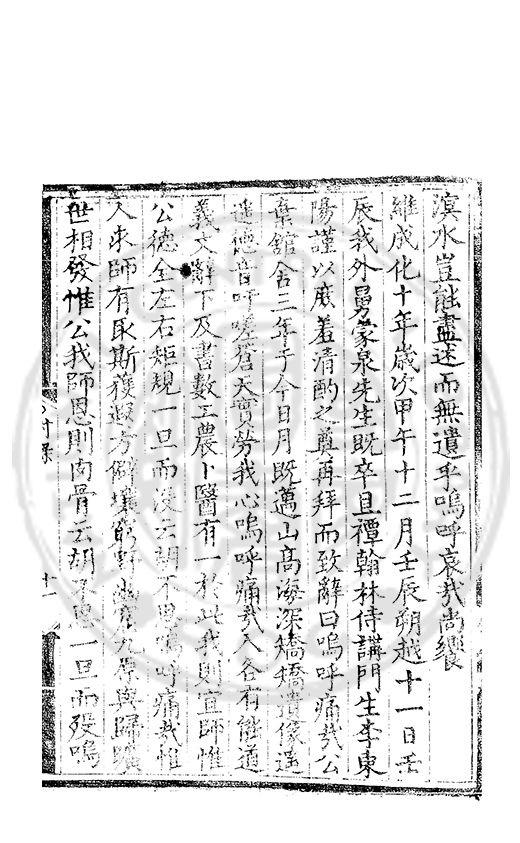 濵水豈能盡述而無遺乎嗚呼哀㦲尚饗
維成化十年歳次甲午十二月壬辰朔越十一日壬
辰我外舅蒙泉先生既卒且禫翰林侍講門生李東
陽謹以庶羞清酌之奠再拜而致辭曰嗚呼痛㦲公
棄舘舍三年于今日月既邁山髙海深矯矯遺像遥
遥德音呼嗟蒼天實勞我心嗚呼痛㦲人各有能道
義文辭下及書數工農卜醫有一於此我則宜師惟
公德全左右矩規一旦而沒云胡不思嗚呼痛㦲惟
人求師有取斯獲遐方僻壤窮野幽宅九原與歸曠
世相發惟公我師恩則肉骨云胡不思一旦而殁嗚
附錄
十一